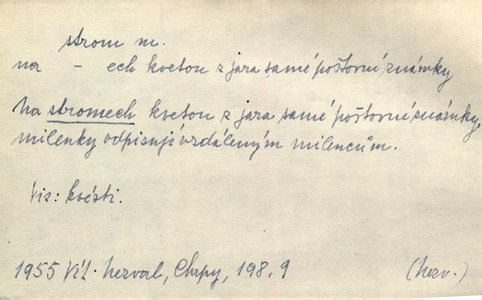 strom m.
na - ech kvetou z jara samé poštovní známky
Na stromech kvetou z jara samé poštovní známky,
milenky odpisují vzdáleným milencům.
Viz: kvésti.
1955 Vít. Nerval, Chrpy, 198.9 (Nerv.)